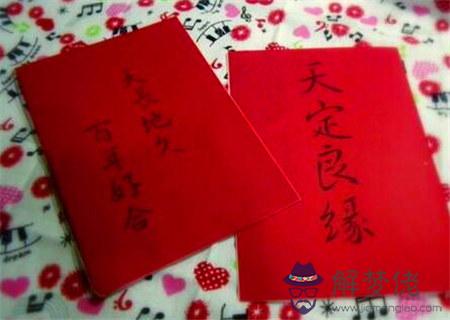 天長地久
百年好合
天定良緣
解梦佬
www.jiemenglao.com